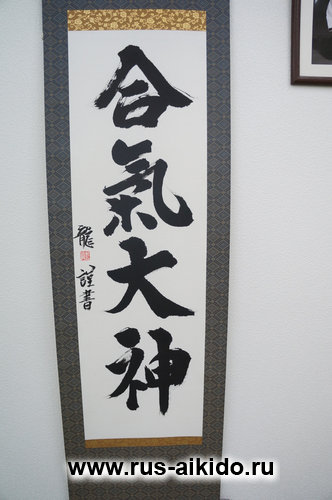 合氣大神
龍
謹書
www.rus-aikido.ru